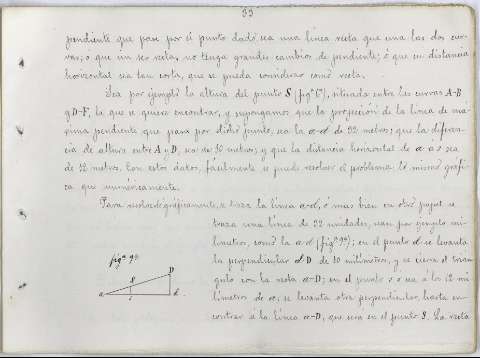 33
pendiente que pase por el punto dado sea una línea recta que una las dos cur-
vas; ó que no sea recta, no tenga grandes cambios de pendiente; ó que su distancia
horizontal sea tan corta, que se pueda considerar como recta.
Sea por ejemplo la altura del punto S (figª 6ª), situado entre las curvas A-B
y D-F, la que se quiere encontrar, y supongamos que la proyección de la línea de má-
xima pendiente que pasa por dicho punto, sea la a-d de 22 metros; que la diferen-
cia de altura entre A y D, sea de 10 metros, y que la distancia horizontal de a a s sea
de 12 metros. Con estos datos, fácilmente se puede resolver el problema, lo mismo gráfi-
ca que numéricamente.
Para resolverlo gráficamente, se traza la línea a-d, ó mas bien en otro papel se
traza una línea de 22 unidades, sean por ejemplo mi-
límetros, como la a-d (figª 9ª); en el punto d se levanta
la perpendicular d D de 10 milímetros, y se cierra el trián-
gulo con la recta a-D; en el punto s ó sea á los 12 mi-
límetros de a, se levanta otra perpendicular, hasta en-
contrar á la línea a-D, que será en el punto S. La recta
figª 9ª
D
S
a
s
d